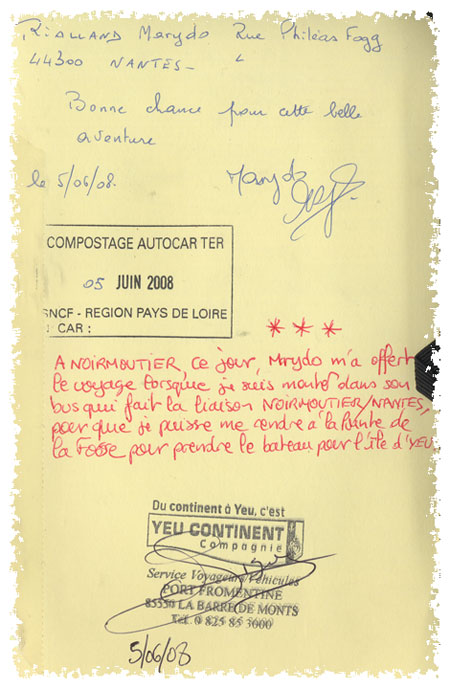 RIALLAND Marydo Rue Philéas Fogg
44300 NANTES -
Bonne chance pour cette belle
aventure
le 5/06/08.
Marydo
COMPOSTAGE AUTOCAR TER
05 JUIN 2008
SNCF - REGION PAYS DE LOIRE
CAR :
***
A NOIRMOUTIER, ce jour, Marydo m'a offert
le voyage lorsque je suis monté dans son
bus qui fait la liaison NOIRMOUTIER/NANTES,
pour que je puisse me rendre à la Pointe de
la Fosse pour prendre le bateau pour l'île d'YEU
Du continent à Yeu, c'est
YEU CONTINENT
Compagnie
Service Voyageurs/Véhicules
PORT FROMENTINE
85550 LA BARRE DE MONTS
Tél. 0 825 85 3000
5/06/08